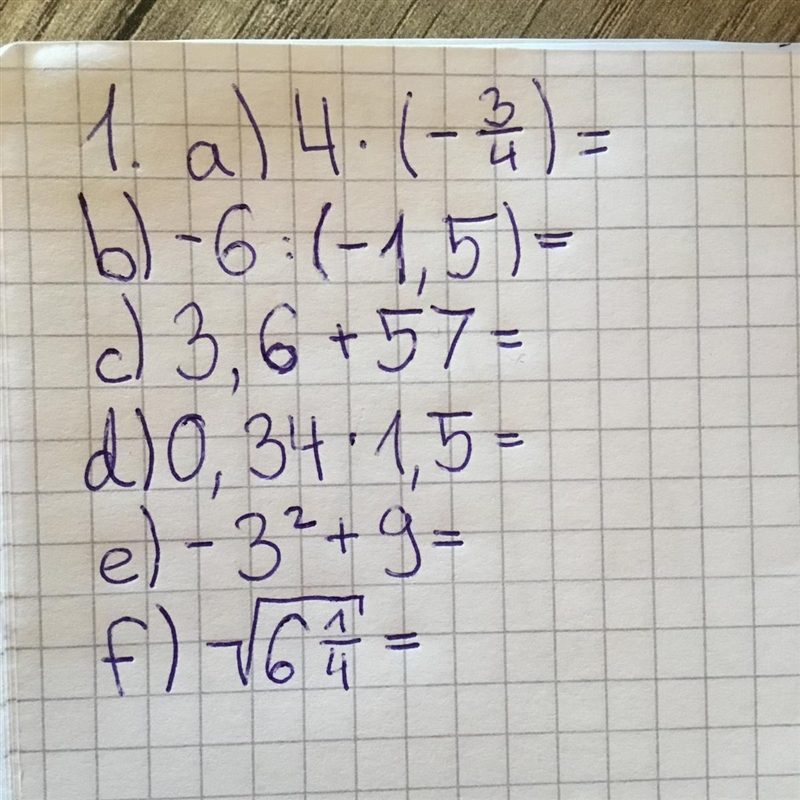 1. a) 4 · (- 3/4) =
b) -6 : (-1,5) =
c) 3,6 + 57 =
d) 0,34 · 1,5 =
e) -3² + 9 =
f) √(6 1/4) =